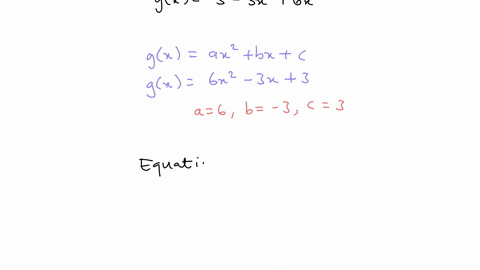 g(x) = 3 - 3x + 6x
g(x) = ax² + bx + c
g(x) = 6x² - 3x + 3
a = 6, b = -3, c = 3
Equati